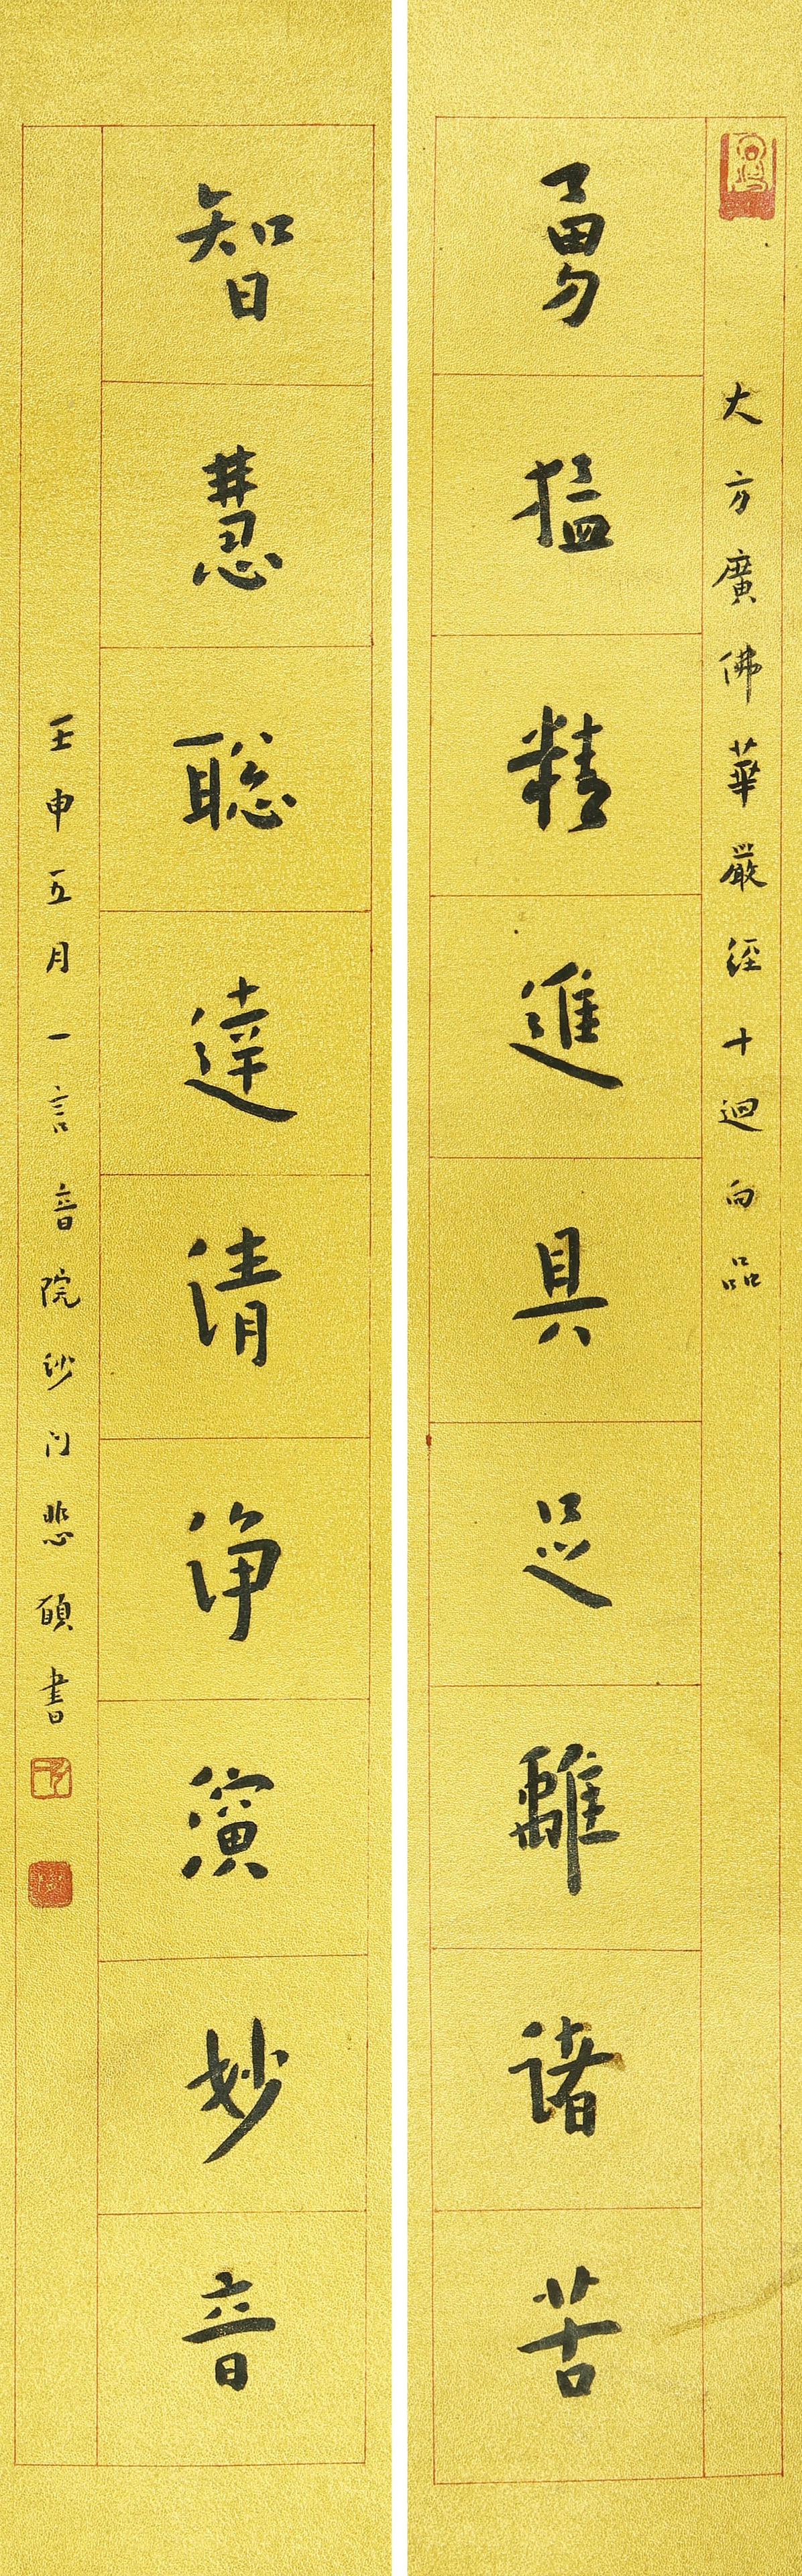 大方廣佛華嚴經十迴向品
勇猛精進具足離諸苦
智慧聰達清淨演妙音
壬申五月一言音院沙门悲願書